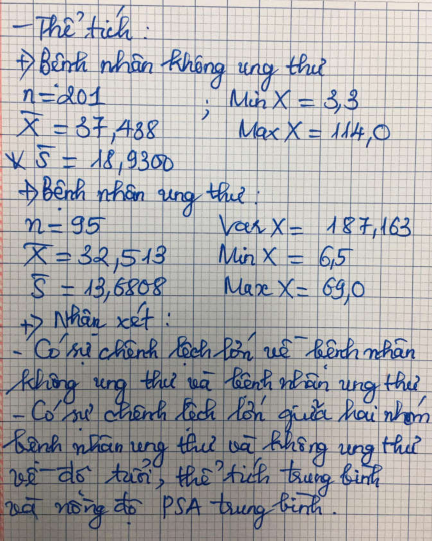 - Thể tích:
+> Bệnh nhân không ung thư
n = 201 ; Min X = 3,3
X̄ = 37,488 Max X = 114,0
v S̄ = 18,9300
+> Bệnh nhân ung thư:
n = 95 Var X = 187,163
X̄ = 32,513 Min X = 6,5
S̄ = 13,6808 Max X = 69,0
+> Nhận xét:
- Có sự chênh lệch lớn về bệnh nhân
không ung thư và bệnh nhân ung thư
- Có sự chênh lệch lớn giữa hai nhóm
bệnh nhân ung thư và không ung thư
về độ tuổi, thể tích trung bình
và nồng độ PSA trung bình.